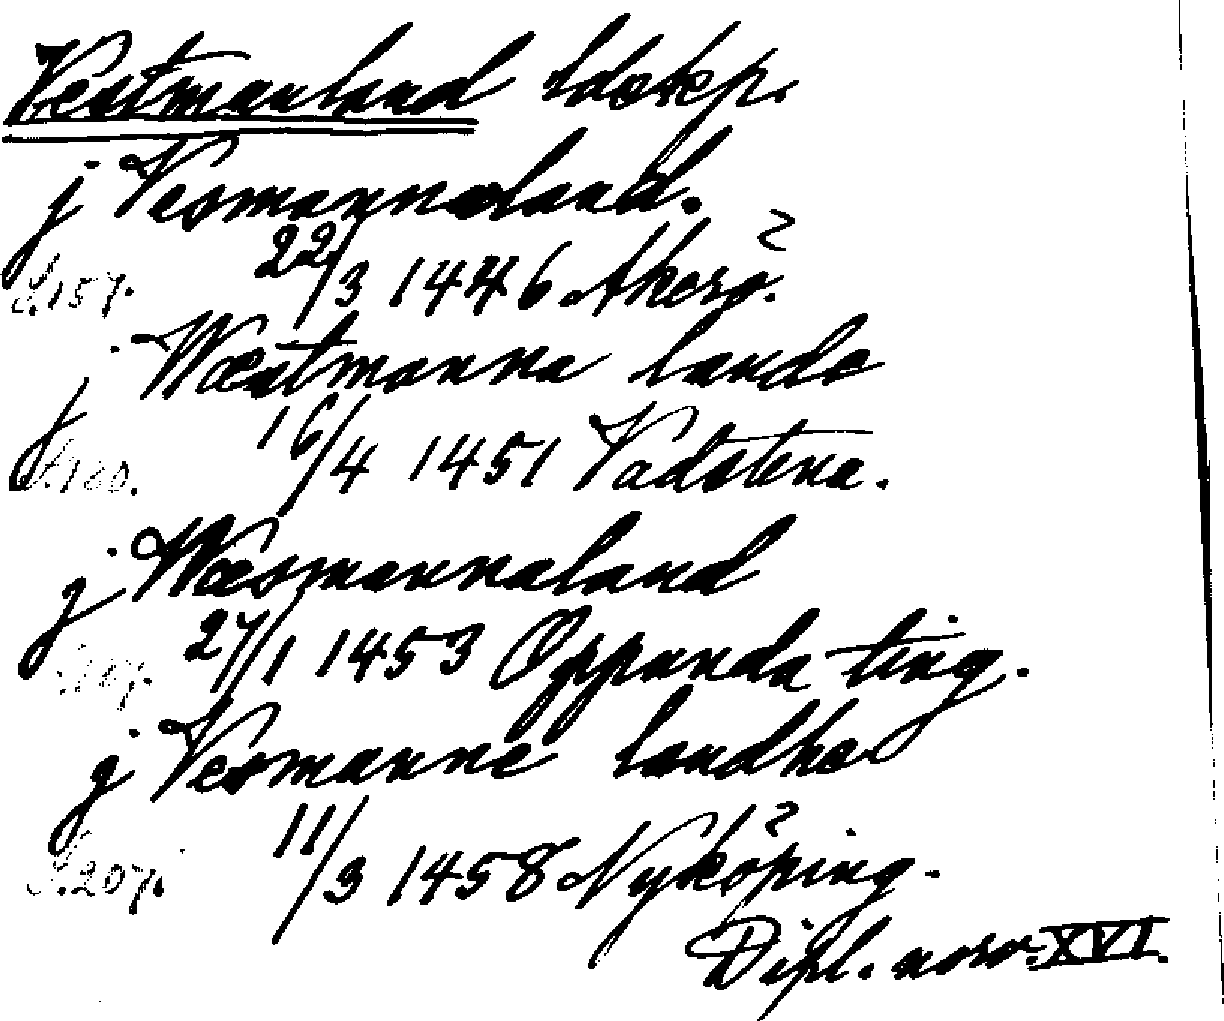 Vestmanland ldskp.
j Vesmannaland.
S. 157. 22/3 1446 Åkerö.
j Wæstmanna lande
16/4 1451 Vadstena.
j Wæsmannaland
27/1 1453 Oppunda ting.
j Vesmanne landhe
S. 207. 11/3 1458 Nyköping.
Dipl. norv. XVI.